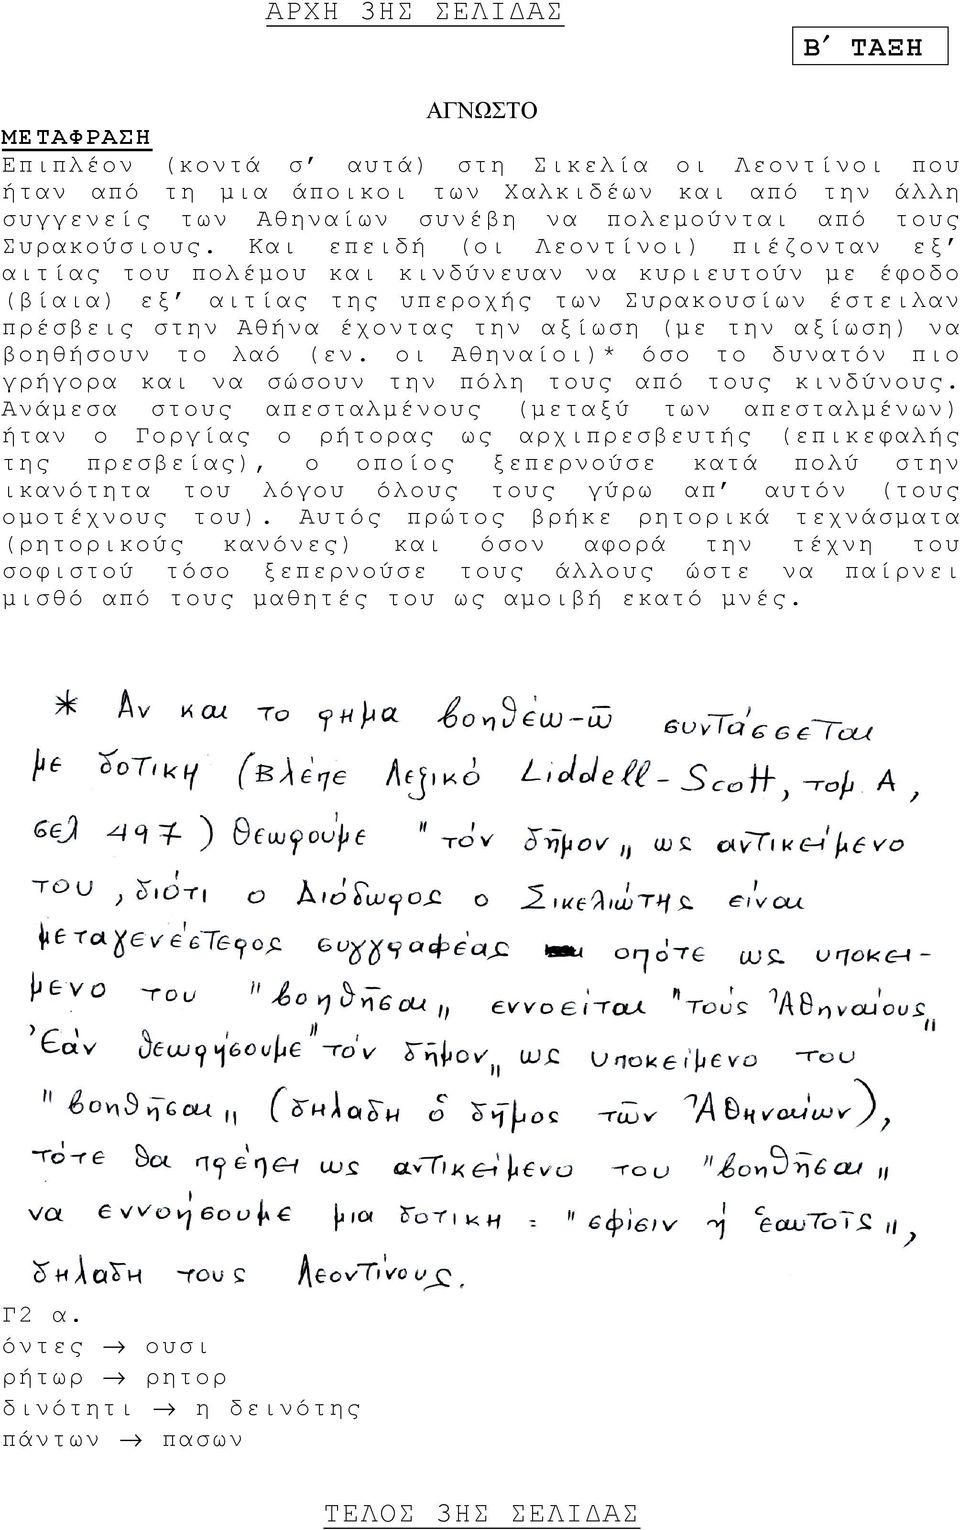 ΑΡΧΗ 3ΗΣ ΣΕΛΙΔΑΣ
Β′ ΤΑΞΗ
ΑΓΝΩΣΤΟ
ΜΕΤΑΦΡΑΣΗ
Επιπλέον (κοντά σ’ αυτά) στη Σικελία οι Λεοντίνοι που
ήταν από τη μια άποικοι των Χαλκιδέων και από την άλλη
συγγενείς των Αθηναίων συνέβη να πολεμούνται από τους
Συρακούσιους. Και επειδή (οι Λεοντίνοι) πιέζονταν εξ’
αιτίας του πολέμου και κινδύνευαν να κυριευτούν με έφοδο
(βίαια) εξ’ αιτίας της υπεροχής των Συρακουσίων έστειλαν
πρέσβεις στην Αθήνα έχοντας την αξίωση (με την αξίωση) να
βοηθήσουν το λαό (εν. οι Αθηναίοι)* όσο το δυνατόν πιο
γρήγορα και να σώσουν την πόλη τους από τους κινδύνους.
Ανάμεσα στους απεσταλμένους (μεταξύ των απεσταλμένων)
ήταν ο Γοργίας ο ρήτορας ως αρχιπρεσβευτής (επικεφαλής
της πρεσβείας), ο οποίος ξεπερνούσε κατά πολύ στην
ικανότητα του λόγου όλους τους γύρω απ’ αυτόν (τους
ομοτέχνους του). Αυτός πρώτος βρήκε ρητορικά τεχνάσματα
(ρητορικούς κανόνες) και όσον αφορά την τέχνη του
σοφιστού τόσο ξεπερνούσε τους άλλους ώστε να παίρνει
μισθό από τους μαθητές του ως αμοιβή εκατό μνές.
* Αν και το ρήμα βοηθέω-ῶ συντάσσεται
με δοτική (Βλέπε Λεξικό Liddell-Scott, τομ. Α,
σελ 497) θεωρούμε "τόν δῆμον" ως αντικείμενο
του, διότι ο Διόδωρος ο Σικελιώτης είναι
μεταγενέστερος συγγραφέας οπότε ως υποκεί-
μενο του "βοηθῆσαι" εννοείται "τούς Ἀθηναίους"
Ἐάν θεωρήσουμε "τόν δῆμον" ως υποκείμενο του
"βοηθῆσαι" (δηλαδή ὁ δῆμος τῶν Ἀθηναίων),
τότε θα πρέπει ως αντικείμενο του "βοηθῆσαι"
να εννοήσουμε μια δοτική : "σφίσιν ή ἑαυτοῖς",
δηλαδή τους Λεοντίνους.
Γ2 α.
όντες → ουσι
ρήτωρ → ρητορ
δινότητι → η δεινότης
πάντων → πασων
ΤΕΛΟΣ 3ΗΣ ΣΕΛΙΔΑΣ